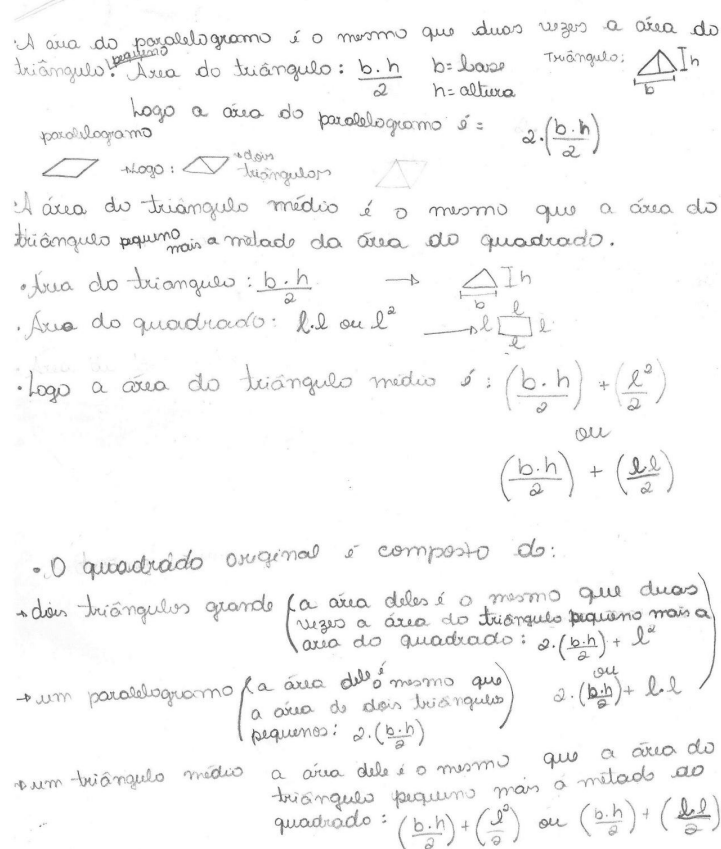 A área do paralelogramo é o mesmo que duas vezes a área do
triângulo pequeno. Área do triângulo: b.h/2 b= base Triângulo: h
h= altura b
Logo a área do paralelogramo é = 2.(b.h/2)
paralelogramo
→Logo: →dois triângulos
A área do triângulo médio é o mesmo que a área do
triângulo pequeno mais a metade da área do quadrado.
• Área do triangulo: b.h/2 → h b
• Área do quadrado: l.l ou l² → l l l l
• Logo a área do triângulo médio é: (b.h/2) + (l²/2)
ou
(b.h/2) + (l.l/2)
• O quadrado original é composto do:
→ dois triângulos grande (a área deles é o mesmo que duas
vezes a área do triângulo pequeno mais a
área do quadrado: 2.(b.h/2) + l²
ou
2.(b.h/2) + l.l)
→ um paralelogramo (a área dele é o mesmo que
a área de dois triângulos
pequenos: 2.(b.h/2))
→ um triângulo médio a área dele é o mesmo que a área do
triângulo pequeno mais a metade do
quadrado: (b.h/2) + (l²/2) ou (b.h/2) + (l.l/2)